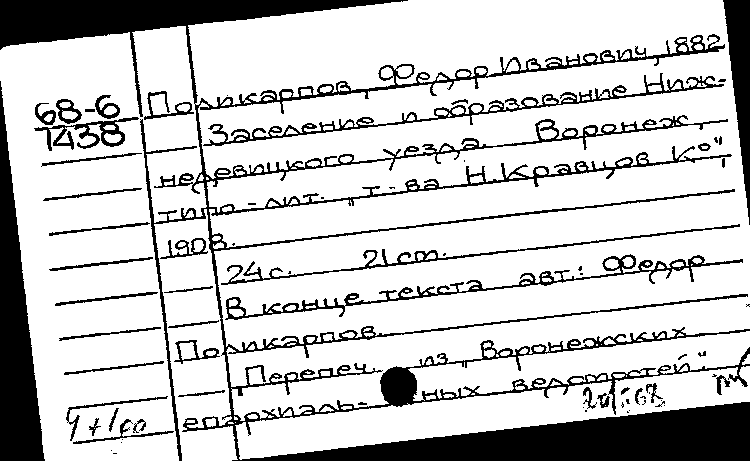 68-6
1438
Поликарпов, Федор Иванович, 1882
Заселение и образование Ниж-
недевицкого уезда. Воронеж,
типо-лит. "т-ва Н.Кравцов К°",
1908.
24 с. 21 см.
В конце текста авт.: Федор
Поликарпов.
"Перепеч. из "Воронежских
епархиаль- ных ведомостей".